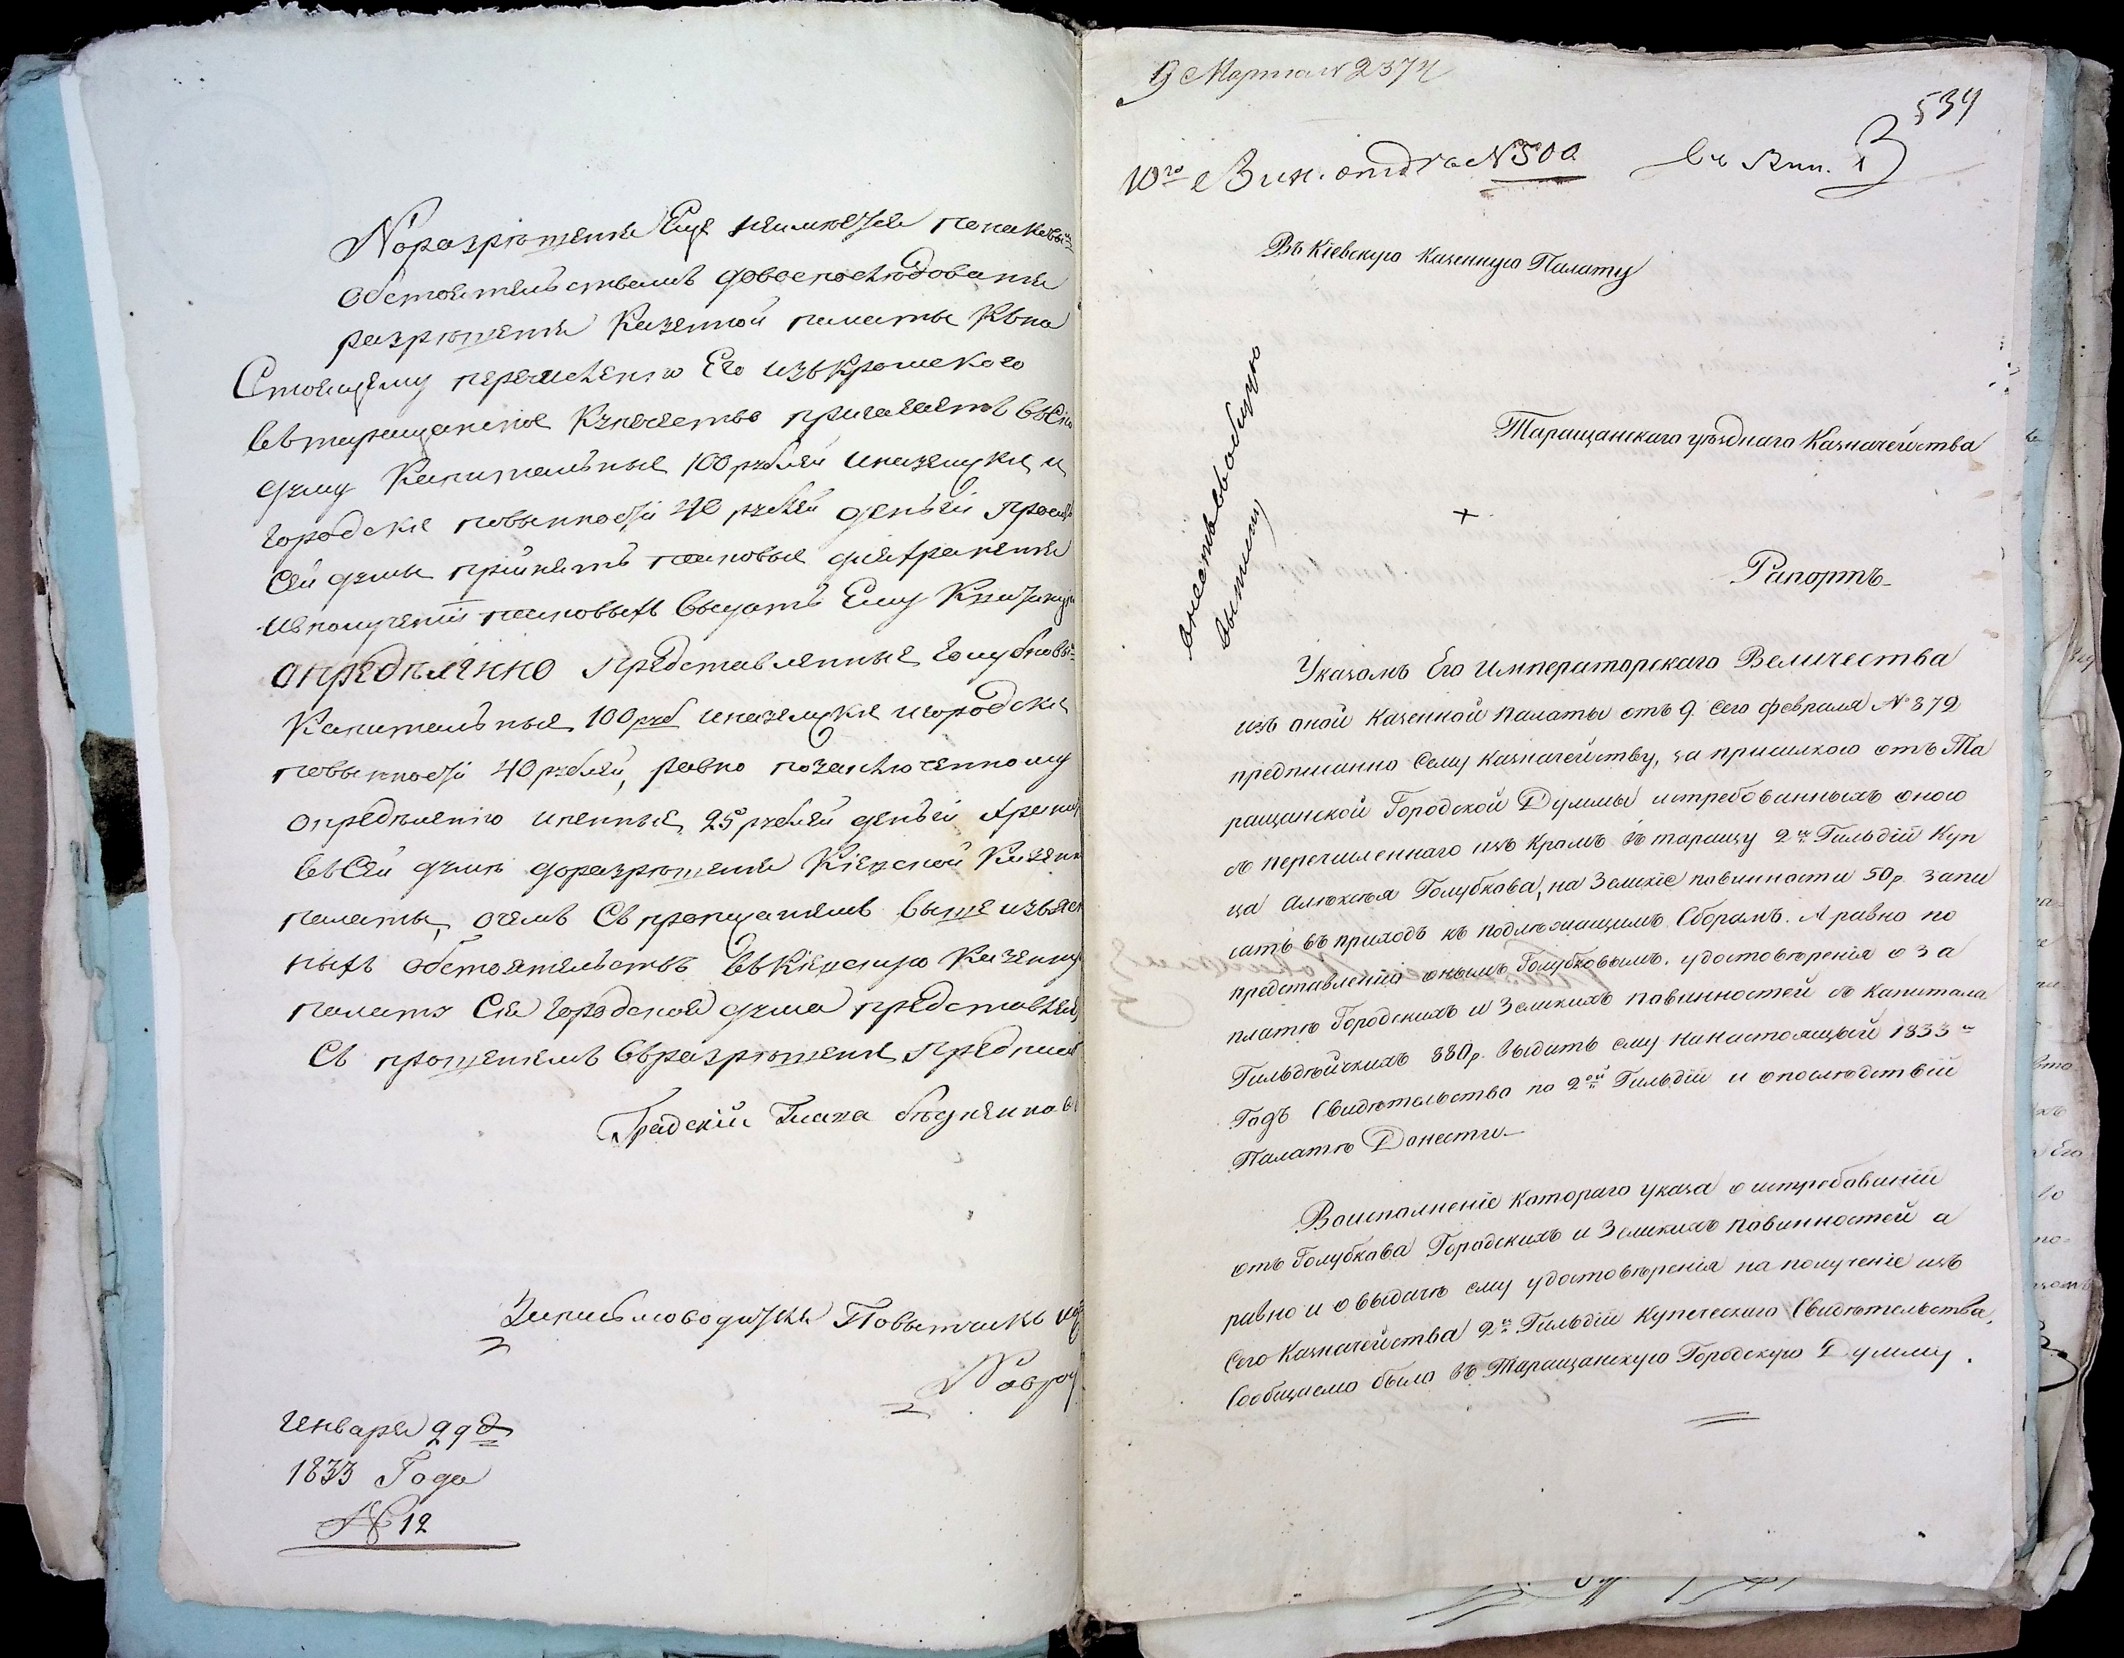 Норазрѣшенія Еще неимѣется потаковы
обстоятельствамъ довоспослѣдованія
разрѣшенія Казенной палаты Къна
стоящему перечисленію Его изъ
въ таращанское Купечество въ Сію
думу Капитальные 100 рублей иназемскія и
городскія повинности 40 рублей денегъ
Сей думы принять таковые дляхраненія
ивполученіи таковыхъ выдать Ему Квитанцію
опредѣленно Представленные Голубковы
Капитальные 100 руб иназемскія игородскія
повинности 40 рублей, равно позаключенному
опредѣленію 25 рублей денегъ
въСей думѣ доразрѣшенія Кіевской Казенн
палаты, очемъ Съ прописаніемъ выше изъяс
ныхъ обстоятельствъ въКіевскую Казенну
палату Сія Городская дума представляя
Съ прошеніемъ оразрѣшеніи
Градскій Глава
Запись моводителя Повытчикъ
Генваря 29 д
1833 Года
№ 12
9 Марта № 2374
534
10го Вин. отд № 500
Въ Кіевскую Казенную Палату
Таращанскаго уѣзднаго Казначейства
Рапортъ
Указомъ Его Императорскаго Величества
изъ оной Казенной Палаты отъ 9. сего февраля № 379
предписанно Сему Казначейству, за присылкою отъ Та
ращанской Городской Думмы истребованныхъ оною
съ перечисленнаго изъ въ таращу 2й Гильдіи Куп
ца Алексѣя Голубкова, на Земскіе повинности 50 р. запи
сать въ приходъ къ подлежащимъ Сборамъ. А равно по
представленіи онымъ Голубковымъ. удостовѣренія о за
платѣ Городскихъ и Земскихъ повинностей съ Капитала
Гильдѣйскихъ 880 р. выдать ему нанастоящый 1833й
Годъ Свидѣтельство по 2ой Гильдіи и опослѣдствіи
Палатѣ Донести
Воисполненіе котораго указа о истребованіи
отъ Голубкова Городскихъ и Земскихъ повинностей а
равно и о выдачѣ ему удостовѣренія на полученіе изъ
сего Казначейства 2й Гильдіи Купеческаго Свидѣтельства,
Сообщаемо было въ Таращанскую Городскую Думму.